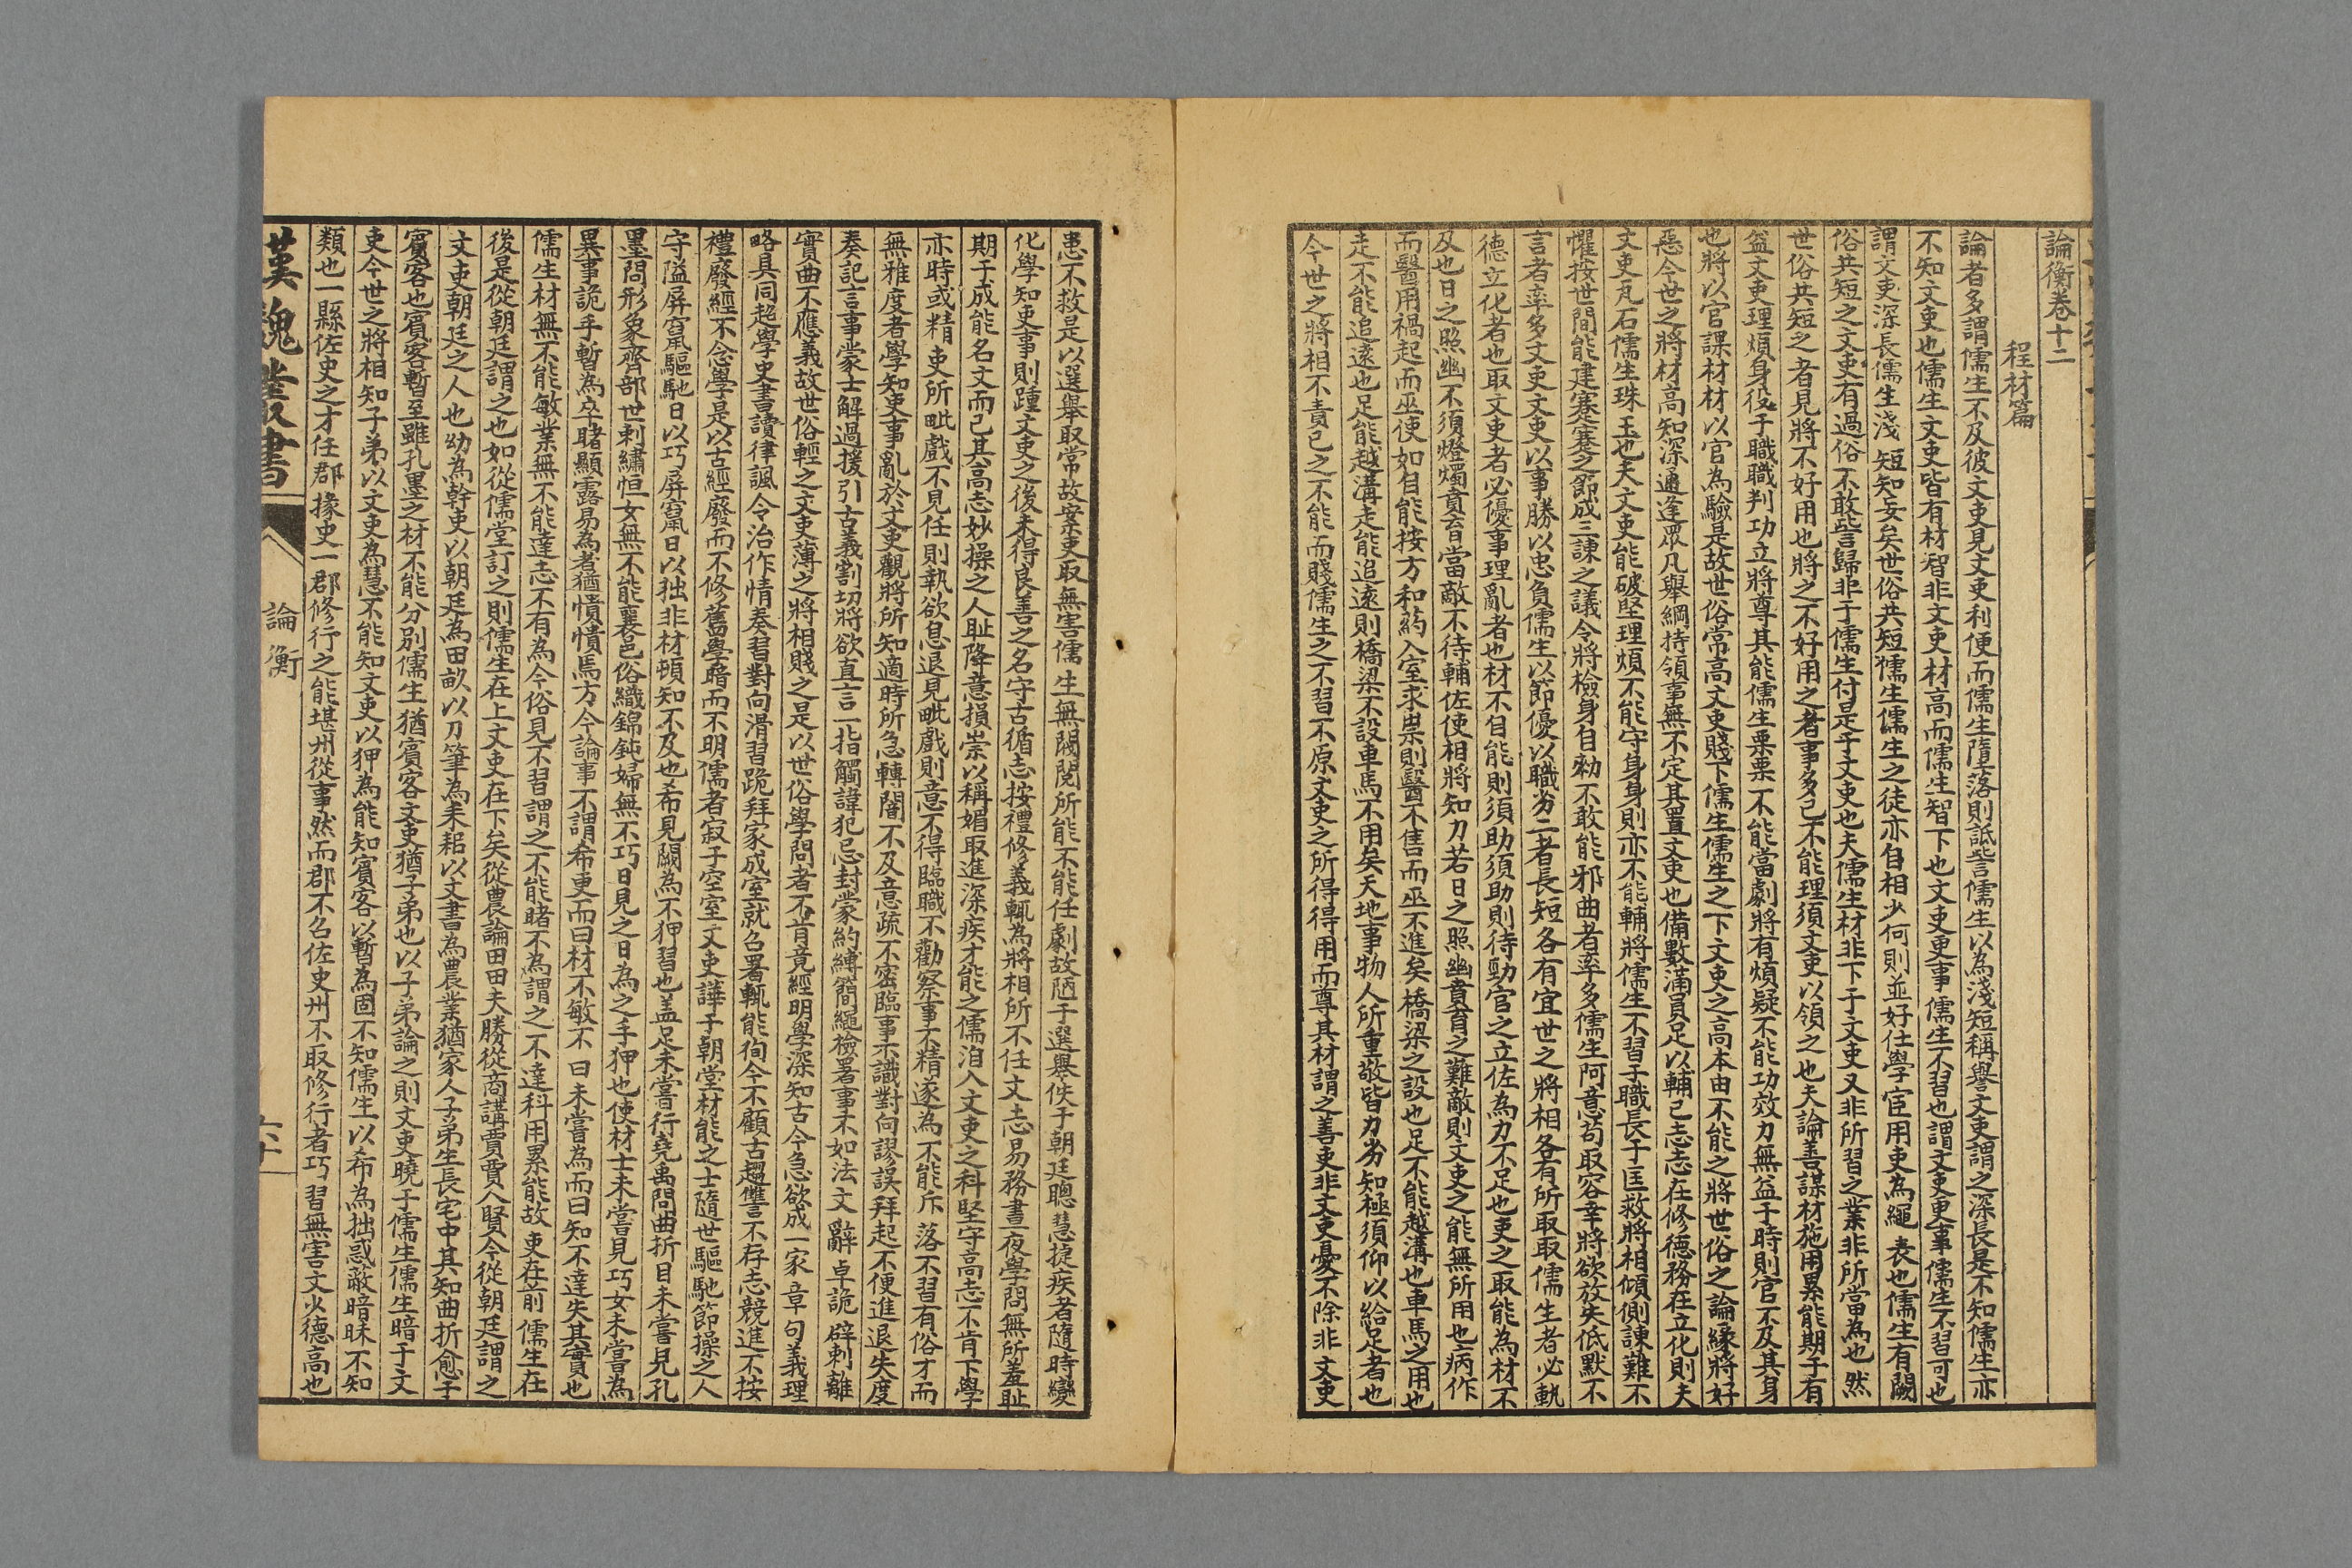 論衡卷十二
程材篇
論者多謂儒生不及彼文吏見文吏利便而儒生墮落則詆訾儒生以為淺短稱譽文吏謂之深長是不知儒生亦
不知文吏也儒生文吏皆有材智非文吏材高而儒生智下也文吏更事儒生不習也謂文吏更事儒生不習可也
謂文吏深長儒生淺短知妄矣世俗共短儒生儒生之徒亦自相少何則並好仕學宦用吏為繩表也儒生有闕
俗共短之文吏有過俗不敢訾歸非于儒生付是于文吏也夫儒生材非下于文吏又非所習之業非所當為也然
世俗共短之者見將不好用也將之不好用之者事多己不能理須文吏以領之也夫論善謀材施用累能期于有
益文吏理煩身役于職職判功立將尊其能儒生栗栗不能當劇將有煩疑不能功效力無益于時則官不及其身
也將以官課材材以官為驗是故世俗常高文吏賤下儒生儒生之下文吏之高本由不能之將世俗之論緣將好
惡今世之將材高知深通達眾凡舉綱持領事無不定其置文吏也備數滿員足以輔己志志在修德務在立化則夫
文吏瓦石儒生珠玉也夫文吏能破堅理煩不能守身身則亦不能輔將儒生不習于職長于匡救將相傾側諫難不
懼按世間能建蹇蹇之節成三諫之議令將檢身自勑不敢能邪曲者率多儒生阿意苟取容幸將欲放失低默不
言者率多文吏文吏以事勝以忠負儒生以節優以職劣二者長短各有宜世之將相各有所取取儒生者必軌
德立化者也取文吏者必優事理亂者也材不自能則須助須助則待勁官之立佐為力不足也吏之取能為材不
及也日之照幽不須燈燭賁育當敵不待輔佐使相將知力若日之照幽賁育之難敵則文吏之能無所用也病作
而醫用禍起而巫使如自能按方和藥入室求祟則醫不售而巫不進矣橋梁之設也足不能越溝也車馬之用也
走不能追遠也足能越溝走能追遠則橋梁不設車馬不用矣天地事物人所重敬皆力劣知極須仰以給足者也
今世之將相不責己之不能而賤儒生之不習不原文吏之所得得用而尊其材謂之善吏非文吏憂不除非文吏
患不救是以選舉取常故案吏取無害儒生無閥閱所能不能任劇故陋于選舉佚于朝廷聰慧捷疾者隨時變
化學知吏事則踵文吏之後未得良善之名守古循志按禮修義輒為將相所不任文士易務晝夜學問無所羞恥
期于成能名文而已其高志妙操之人恥降意損崇以稱媚取進深疾才能之儒洎入文吏之科堅守高志不肯下學
亦時或精吏所毗戲不見任則執欲息退見毗戲則意不得臨職不勸察事不精遂為不能斥落不習有俗才而
無雅度者學知吏事亂於文吏觀將所知適時所急轉闇不及意疏不密臨事不識對向謬誤拜起不便進退失度
奏記言事蒙士解過援引古義割切將欲直言一指觸諱犯忌封蒙約縛簡繩檢署事不如法文辭卓詭辟刺離
實曲不應義故世俗輕之文吏薄之將相賤之是以世俗學問者不肯竟經明學深知古今急欲成一家章句義理
略具同趨學史書讀律諷令治作情奏習對向滑習跪拜家成室就召署輒能徇今不顧古趨讎不存志競進不按
禮廢經不念學是以古經廢而不修舊學暗而不明儒者寂于空室文吏譁于朝堂材能之士隨世驅馳節操之人
守隘屏竄驅馳日以巧屏竄日以拙非材頓知不及也希見闕為不狎習也盖足未嘗行堯禹問曲折目未嘗見孔
墨問形象齊部世刺繡恒女無不能襄邑俗織錦鈍婦無不巧日見之日為之手狎也使材士未嘗見巧女未嘗為
異事詭手暫為卒睹顯露易為者猶憒憒焉方今論事不謂希更而曰材不敏不曰未嘗為而曰知不達失其實也
儒生材無不能敏業無不能達志不有為今俗見不習謂之不能睹不為謂之不達科用累能故吏在前儒生在
後是從朝廷謂之也如從儒堂訂之則儒生在上文吏在下矣從農論田田夫勝從商講賈賈人賢今從朝廷謂之
文吏朝廷之人也幼為幹吏以朝廷為田畝以刀筆為耒耜以文書為農業猶家人子弟生長宅中其知曲折愈于
賓客也賓客暫至雖孔墨之材不能分別儒生猶賓客文吏猶子弟也以子弟論之則文吏曉于儒生儒生暗于文
吏今世之將相知子弟以文吏為慧不能知文吏以狎為能知賓客以暫為固不知儒生以希為拙惑蔽暗昧不知
類也一縣佐史之才任郡掾史一郡修行之能堪州從事然而郡不召佐史州不取修行者巧習無害文少德高也
漢魏叢書
論衡
六十